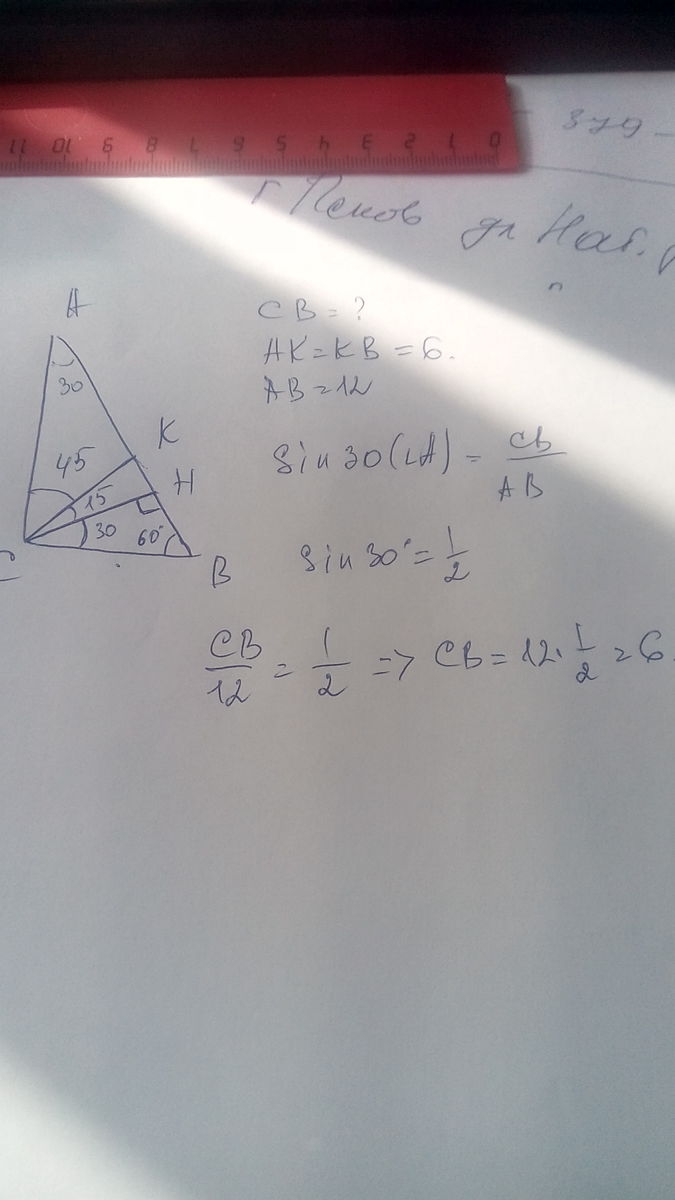 11 10 9 8 7 6 5 4 3 2 1 0
379 -
г Псков
A
30
45
K
15
H
30
60°
C
B
CB = ?
AK = KB = 6.
AB = 12
Sin 30 (∠A) = CB/AB
Sin 30° = 1/2
CB/12 = 1/2 => CB = 12 · 1/2 = 6.